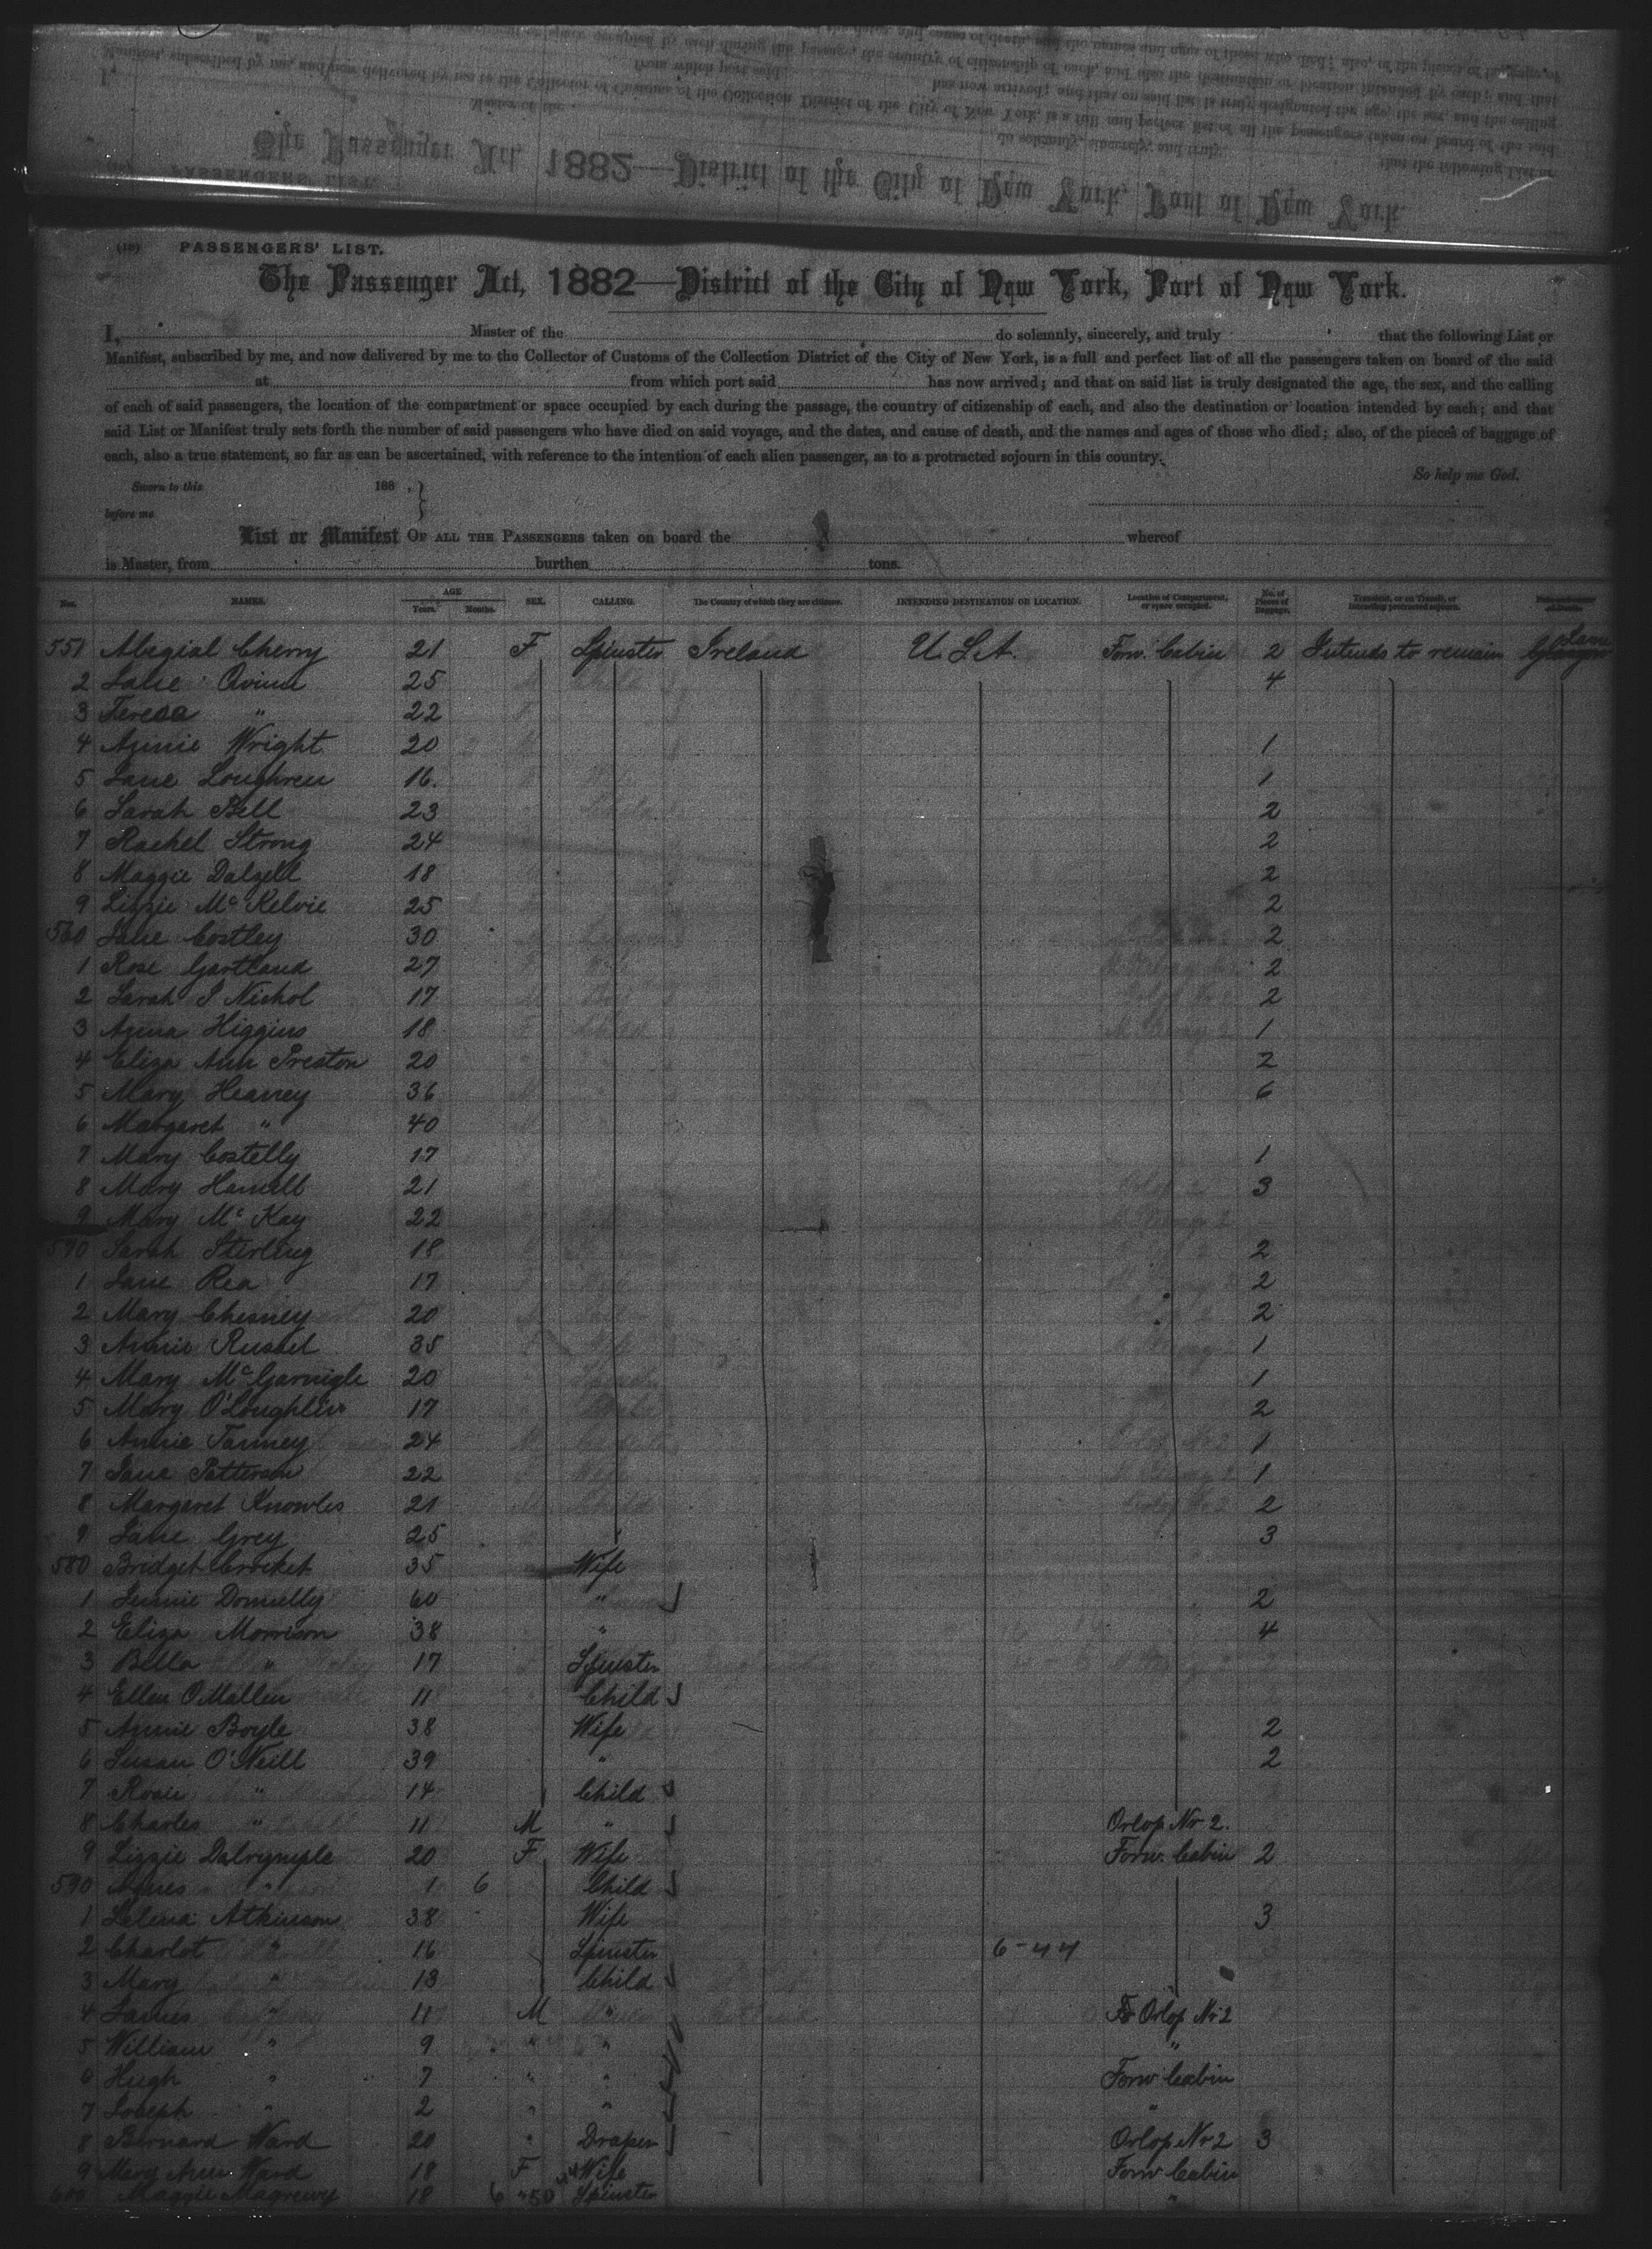 The Passenger Act, 1882—District of the City of New York, Port of New York.
PASSENGERS' LIST.
The Passenger Act, 1882—District of the City of New York, Port of New York.
I, Master of the do solemnly, sincerely, and truly that the following List or
Manifest, subscribed by me, and now delivered by me to the Collector of Customs of the Collection District of the City of New York, is a full and perfect list of all the passengers taken on board of the said
at from which port said has now arrived; and that on said list is truly designated the age, the sex, and the calling
of each of said passengers, the location of the compartment or space occupied by each during the passage, the country of citizenship of each, and also the destination or location intended by each; and that
said List or Manifest truly sets forth the number of said passengers who have died on said voyage, and the dates, and cause of death, and the names and ages of those who died; also, of the pieces of baggage of
each, also a true statement, so far as can be ascertained, with reference to the intention of each alien passenger, as to a protracted sojourn in this country.
So help me God.
Sworn to this 188 ,
before me
List or Manifest OF ALL THE PASSENGERS taken on board the whereof
is Master, from burthen tons.
Nos. NAMES. AGE Years. Months. SEX. CALLING. The Country of which they are citizens. INTENDING DESTINATION OR LOCATION. Location of Compartment, or space occupied. No. of Pieces of Baggage. Transient, or on Transit, or intending protracted sojourn.
551 Abegial Cherry 21 F Spinster Ireland U.S.A. Forw. Cabin 2 Intends to remain
2 Jane Quinn 25 4
3 Teresa " 22
4 Annie Wright 20 1
5 Jane Loughren 16. 1
6 Sarah Bell 23 2
7 Rachel Strong 24 2
8 Maggie Dalzell 18 2
9 Lizzie McKelvie 25 2
560 Jane Costley 30 2
1 Rose Gartland 27 2
2 Sarah J Nichol 17 2
3 Anna Higgins 18 1
4 Eliza Ann Preston 20 2
5 Mary Heaney 36 6
6 Margaret " 40
7 Mary Costelly 17 1
8 Mary Hamill 21 3
9 Mary McKay 22
570 Sarah Sterling 18 2
1 Jane Rea 17 2
2 Mary Chesney 20 2
3 Annie Russel 35 1
4 Mary McGarnigle 20 1
5 Mary O'Loughlin 17 2
6 Annie Tanney 24 1
7 Jane Patterson 22 1
8 Margaret Knowles 21 2
9 Jane Grey 25 3
580 Bridget Crocket 35 Wife
1 Jennie Donnelly 60 " 2
2 Eliza Morrison 38 " 4
3 Bella " 17 Spinster
4 Ellen O'Mallen 11 Child
5 Annie Boyle 38 Wife 2
6 Susan O'Neill 39 " 2
7 Rosie " 14 Child
8 Charles " 11 M " Orlop Nr 2.
9 Lizzie Dalrymple 20 F Wife Forw. Cabin 2
590 Agnes " 1 6 Child
1 Selina Atkinson 38 Wife 3
2 Charlot " 16 Spinster 6-44
3 Mary " 13 Child
4 James " 11 M " Orlop Nr 2
5 William " 9 " " "
6 Hugh " 7 " " Forw Cabin
7 Joseph " 2 " " "
8 Bernard Ward 20 " Draper Orlop Nr 2 3
9 Mary Ann Ward 18 F Wife Forw Cabin
600 Maggie Magreevy 18 Spinster "